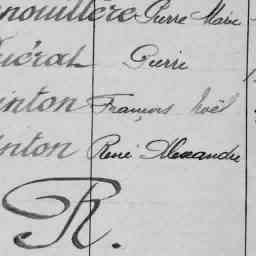 nouillère Pierre Marie
uéral Pierre
inton François Noël
inton René Alexandre
R.